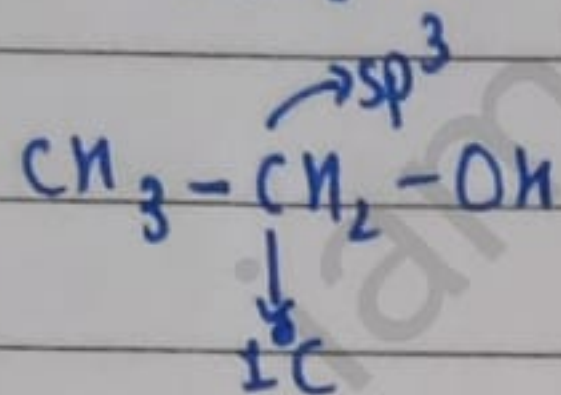 sp³
CH₃ - CH₂ - OH
1°C
iam